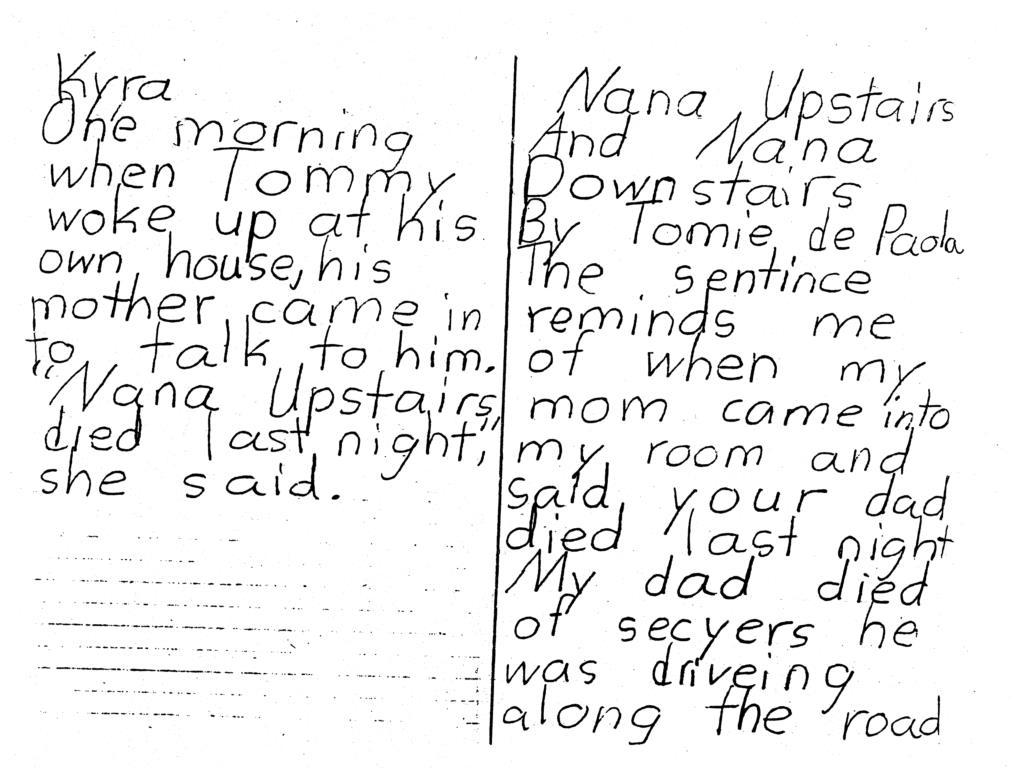 Kyra
One morning
when Tommy
woke up at his
own house, his
mother came in
to talk to him.
"Nana Upstairs
died last night,"
she said.
Nana Upstairs
And Nana
Downstairs
By Tomie de Paola
The sentince
reminds me
of when my
mom came into
my room and
said your dad
died last night
My dad died
of secyers he
was driveing
along the road